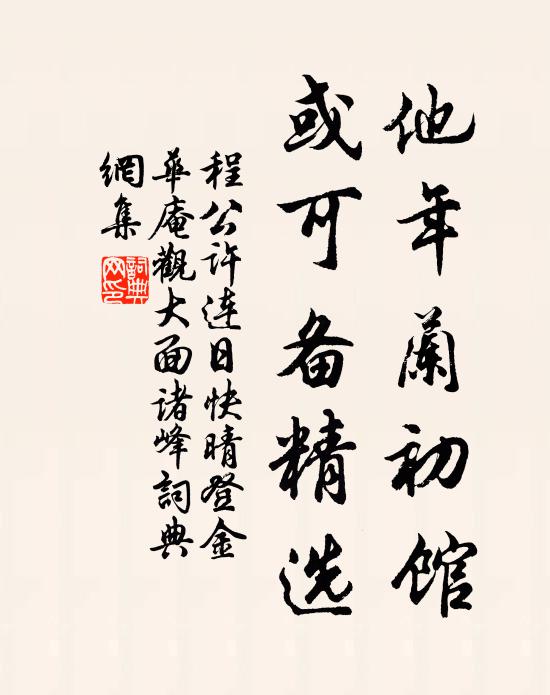 他年蘭初館
或可备精选
程公许连日快晴登金
華庵觀大面诸峰詞典
網集
詞典
网印